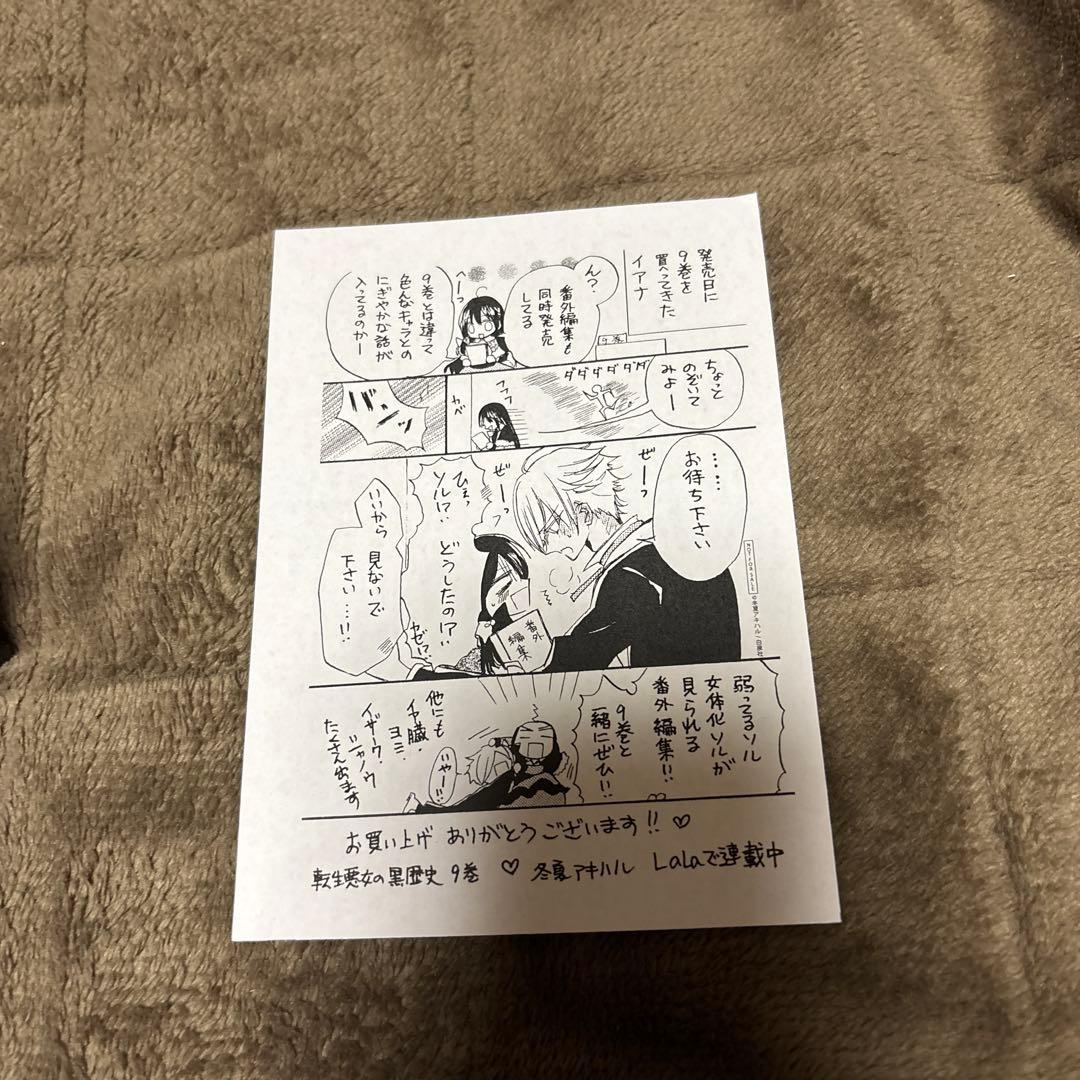 発売日に
9巻を
買ってきた
イアナ
9巻
ん？
番外編集も
同時発売
してる
へーっ
9巻とは違って
色んなキャラとの
にぎやかな話が
入ってるのかー
ちょっと
のぞいて
みよー
ダダダダダダ
フフフ
カベ
バンッ
……
お待ち下さい
ぜーっ
ぜーっ
ひえっ
ソル!?
どうしたの!?
番外
編集
いいから
見ないで
下さい…!!
カゼ!?
NOT FOR SALE
©冬夏アキハル/白泉社
弱ってるソル
女体化ソルが
見られる
番外編集!!
9巻と
一緒にぜひい!!
いやーっ!!
他にも
ヨミ・
イザーク・
シャノウ
たくさん出ます
お買い上げ ありがとうございます!! ♡
転生悪女の黒歴史 9巻 ♡ 冬夏アキハル LaLaで連載中